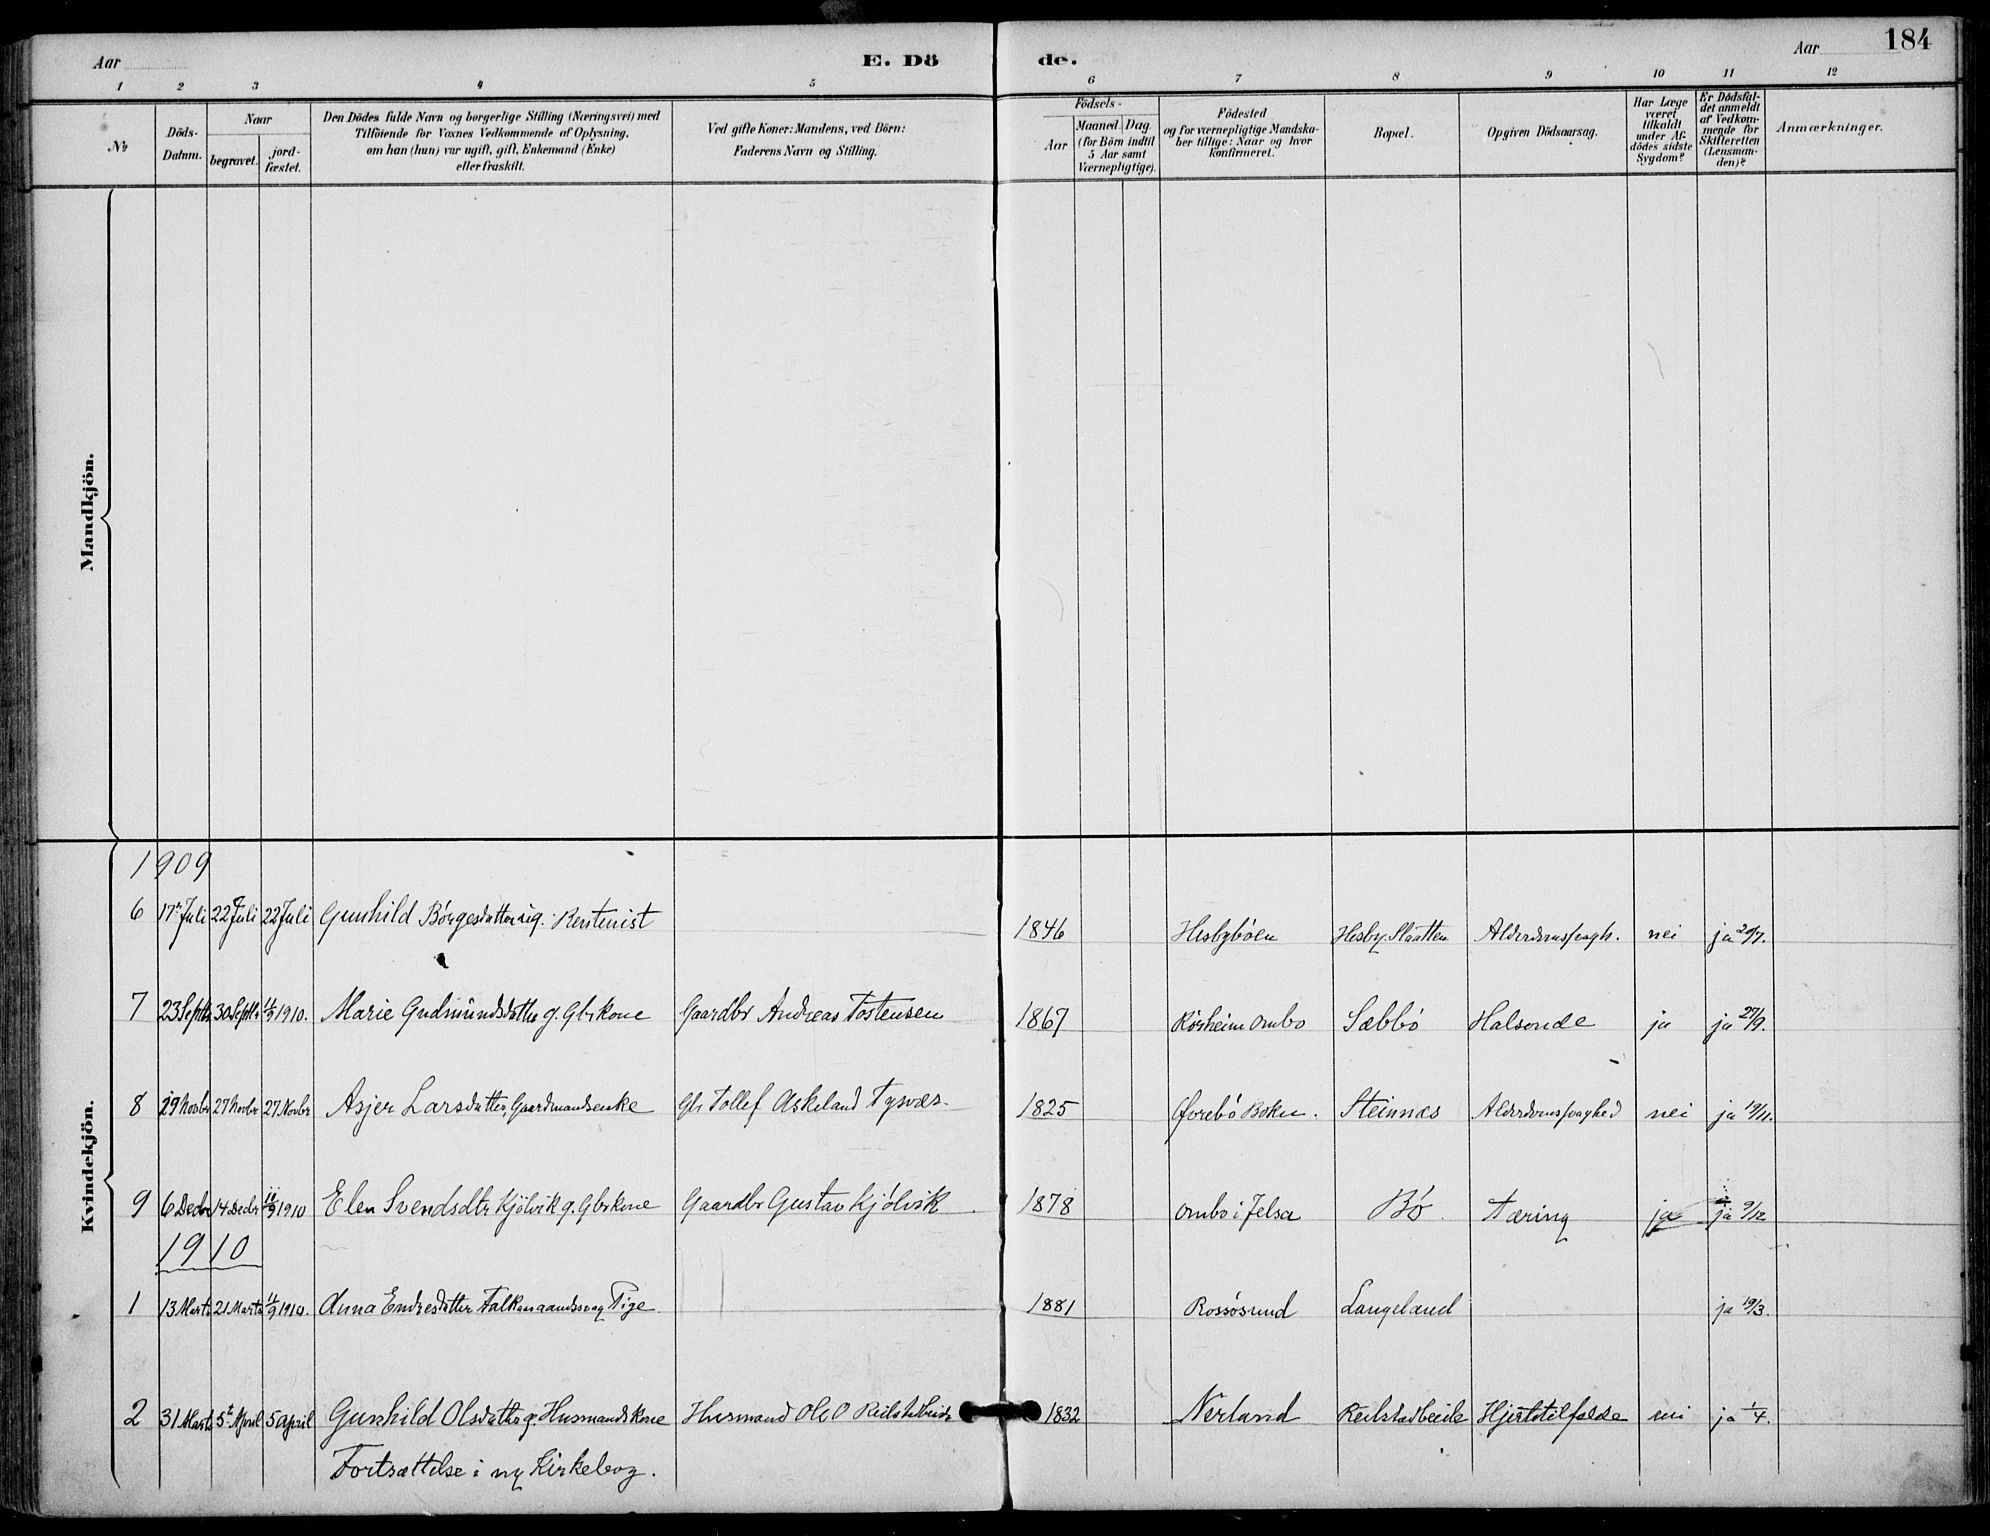 184
Aar
E. Dö
de.
Aar
1 2 3 4 5 6 7 8 9 10 11 12
№
Döds-Datum.
Naar
begravet.
jord-fæstet.
Den Dödes fulde Navn og borgerlige Stilling (Næringsvei) med
Tilföiende for Voxnes Vedkommende af Oplysning,
om han (hun) var ugift, gift, Enkemand (Enke)
eller fraskilt.
Ved gifte Koner: Mandens, ved Börn:
Faderens Navn og Stilling.
Födsels-
Aar
Maaned. Dag.
(for Börn indtil
5 Aar samt
Værnepligtige).
Födested
og for værnepligtige Mandska-
ber tillige: Naar og hvor
konfirmeret.
Bopæl.
Opgiven Dödsaarsag.
Har Læge
været
tilkaldt
under Af-
dödes sidste
Sygdom?
Er Dödsfal-
det anmeldt
af Vedkom-
mende for
Skifteretten
(Lensman-
den)?
Anmærkninger.
Mandkjön.
Kvindekjön.
1909
6 17de Juli 22 Juli 22 Juli Gunhild Börgesdatter ug. Rentenist 1846 Hesbybøen Hesby Slaatten nei ja 20/7.
7 23 Septbr 30 Septbr 11/9 1910. Marie Gudmundsdatter g. Gbrkone Gaardbr Andreas Tostensen 1867 Rørheim Ombo Sæbbø Halsonde ja ja 27/9.
8 29 Novbr 27 Novbr 27 Novbr Asjer Larsdatter, Gaardmandsenke Gbr Tollef Askeland Tysvær 1825 Øvrebø Bokn. Steinnæs Alderdomssvaghed nei ja 19/11.
9 6 Decbr 14 Decbr 11/9 1910 Elen Svendsdtr Kjölvik g. Gbrkone Gaardbr Gustav Kjölvik 1878 Ombo i Jelsa Bø Tæring ja ja 9/12
1910
1 13 Marts 21 Marts 11/9 1910. Anna Endresdatter Pige. 1881 Rossøsund Langeland ja 19/3.
2 31 Marts 5te April 5 April Gunhild Olsdatter g. Husmandskone Husmand Ole O 1832 Nerland Hjertetilfælde nei ja 1/4.
Fortsættelse i ny Kirkebog.